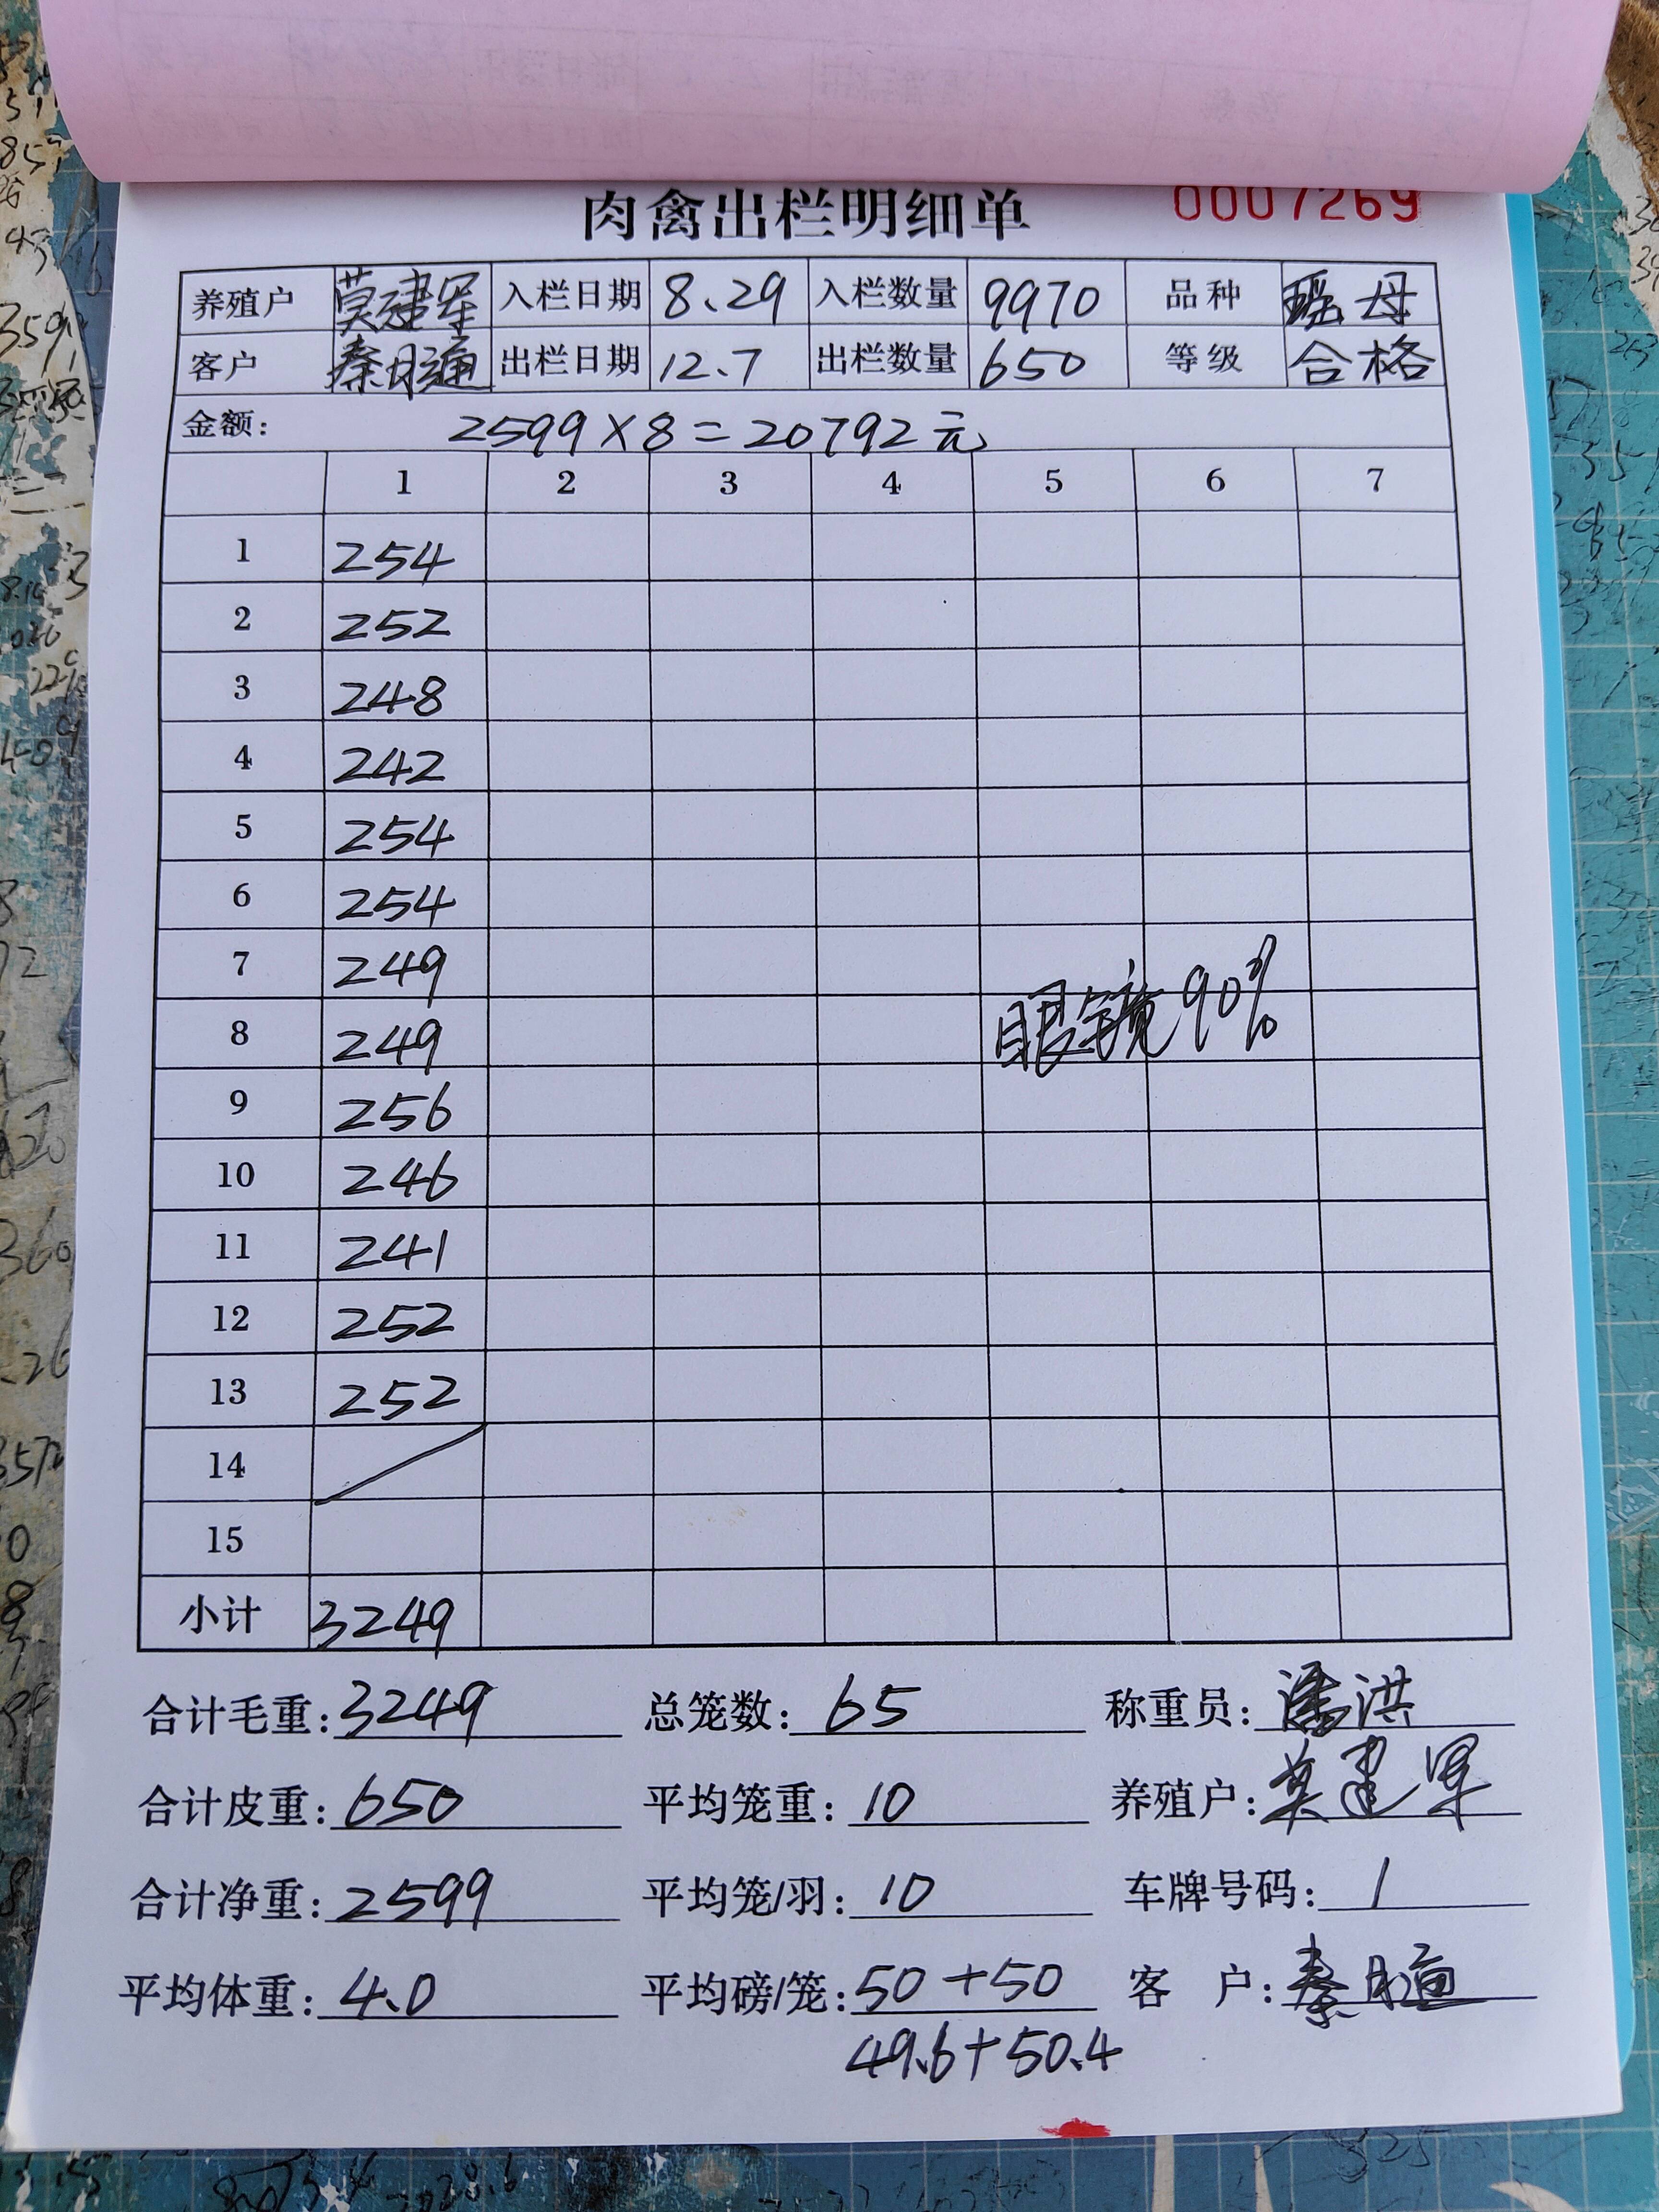 肉禽出栏明细单 0007269
养殖户 莫建军 入栏日期 8.29 入栏数量 9970 品种 瑶母
客户 秦月通 出栏日期 12.7 出栏数量 650 等级 合格
金额: 2599×8=20792元
1 2 3 4 5 6 7
1 254
2 252
3 248
4 242
5 254
6 254
7 249
8 249 眼镜90%
9 256
10 246
11 241
12 252
13 252
14
15
小计 3249
合计毛重: 3249 总笼数: 65 称重员: 潘洪
合计皮重: 650 平均笼重: 10 养殖户: 莫建军
合计净重: 2599 平均笼/羽: 10 车牌号码: 1
平均体重: 4.0 平均磅/笼: 50+50 客户: 秦月通
49.6+50.4